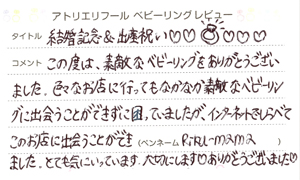 アトリエリフール ベビーリングレビュー
タイトル 結婚記念&出産祝い♡♡💍♡♡♡
コメント この度は、素敵なベビーリングをありがとうござい
ました。色々なお店に行ってもなかなか素敵なベビーリン
グに出会うことができずに困っていましたが、インターネットでしらべて
このお店に出会うことができ (ペンネーム RiRU-mama )
ました。とても気にいっています。大切にします♡ありがとうございました♡